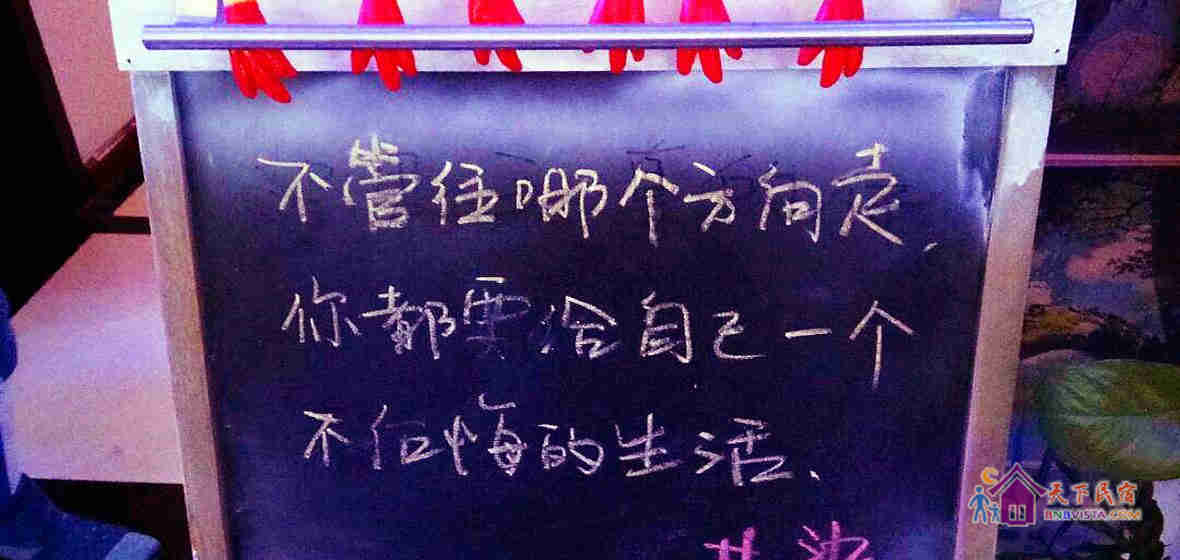 不管往哪个方向走,
你都要给自己一个
不后悔的生活.
天下民宿
BNBVISTA.COM